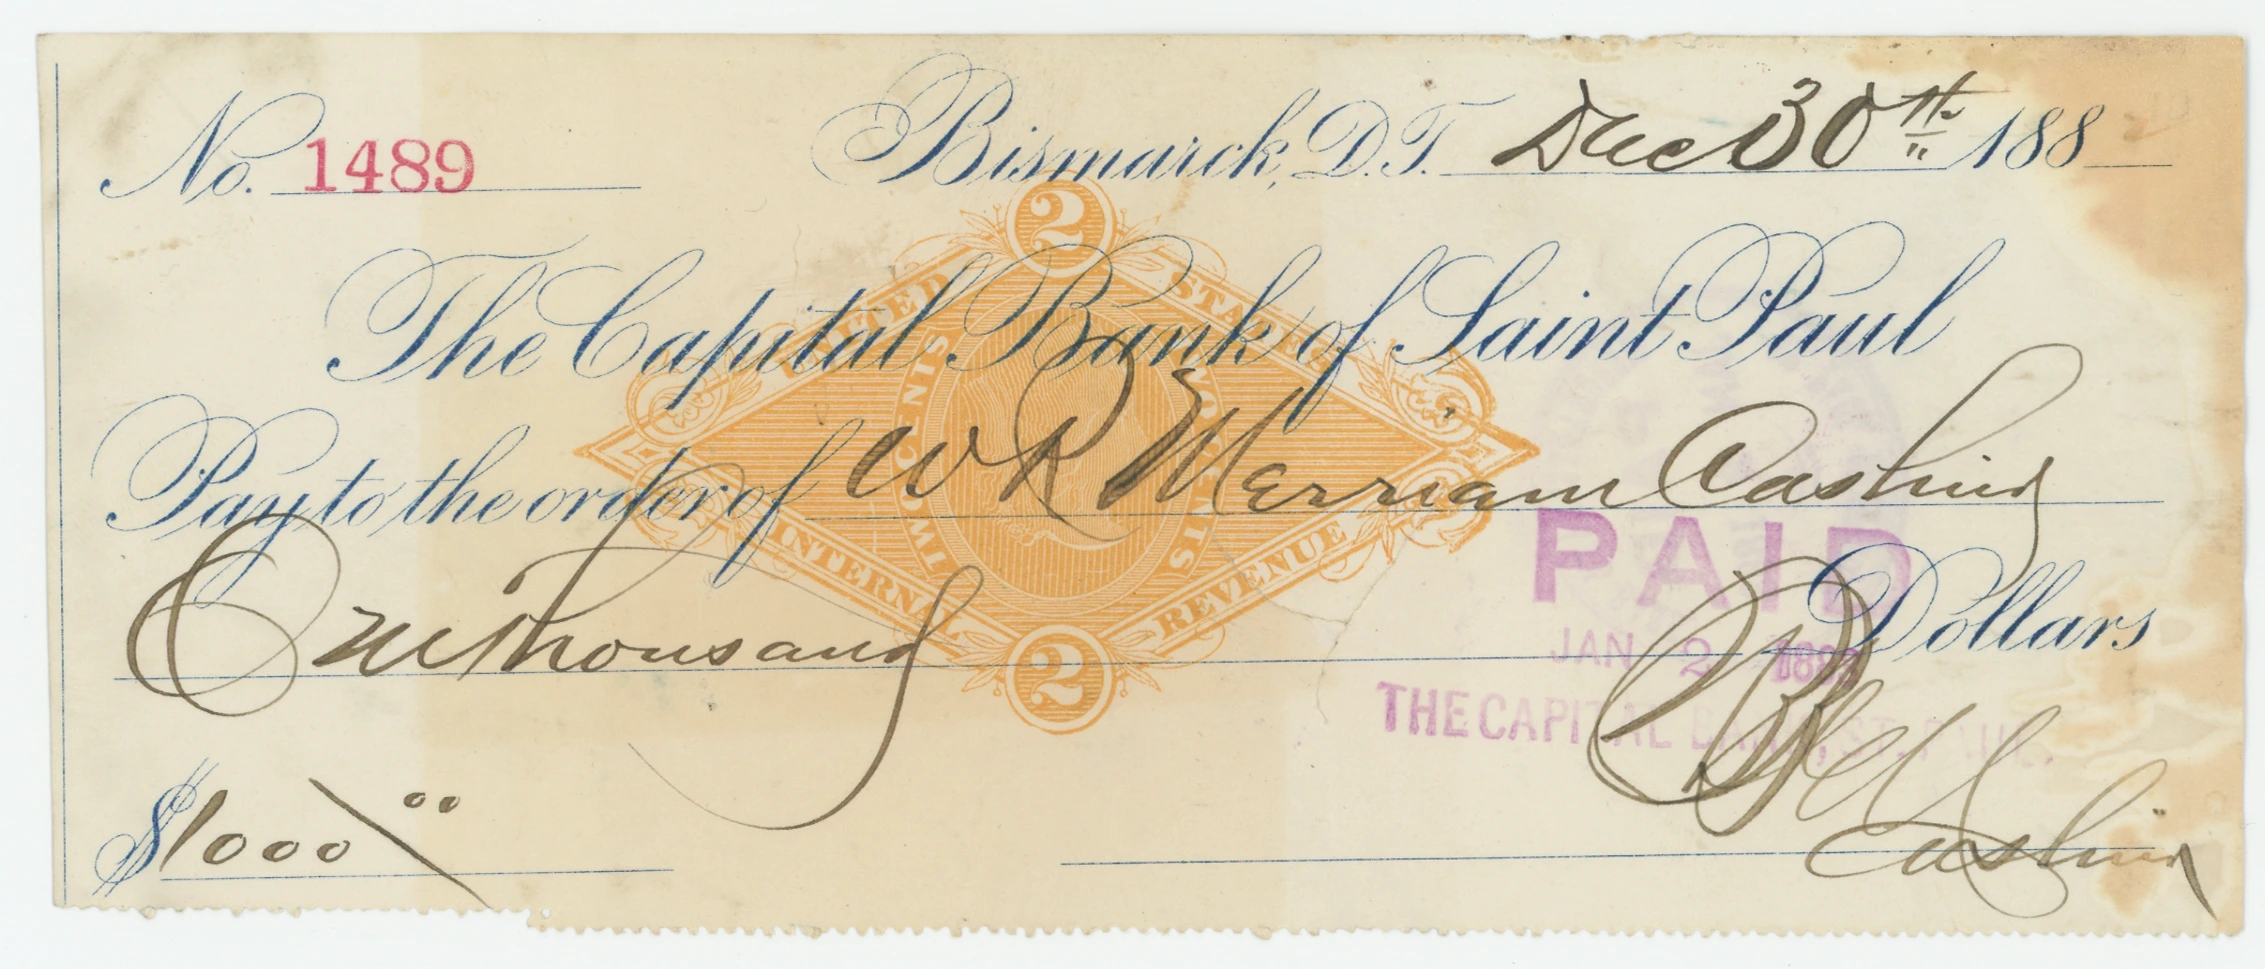 No. 1489 Bismarck, D.T. Dec 30th 188
The Capital Bank of Saint Paul
Pay to the order of W R Merriam Cashier
One Thousand Dollars
$1000/00
Cashier
2
UNITED STATES OF
TWO CENTS TWO CENTS
INTERNAL REVENUE
2
PAID
JAN 2 188
THE CAPITAL BANK, ST. PAUL.